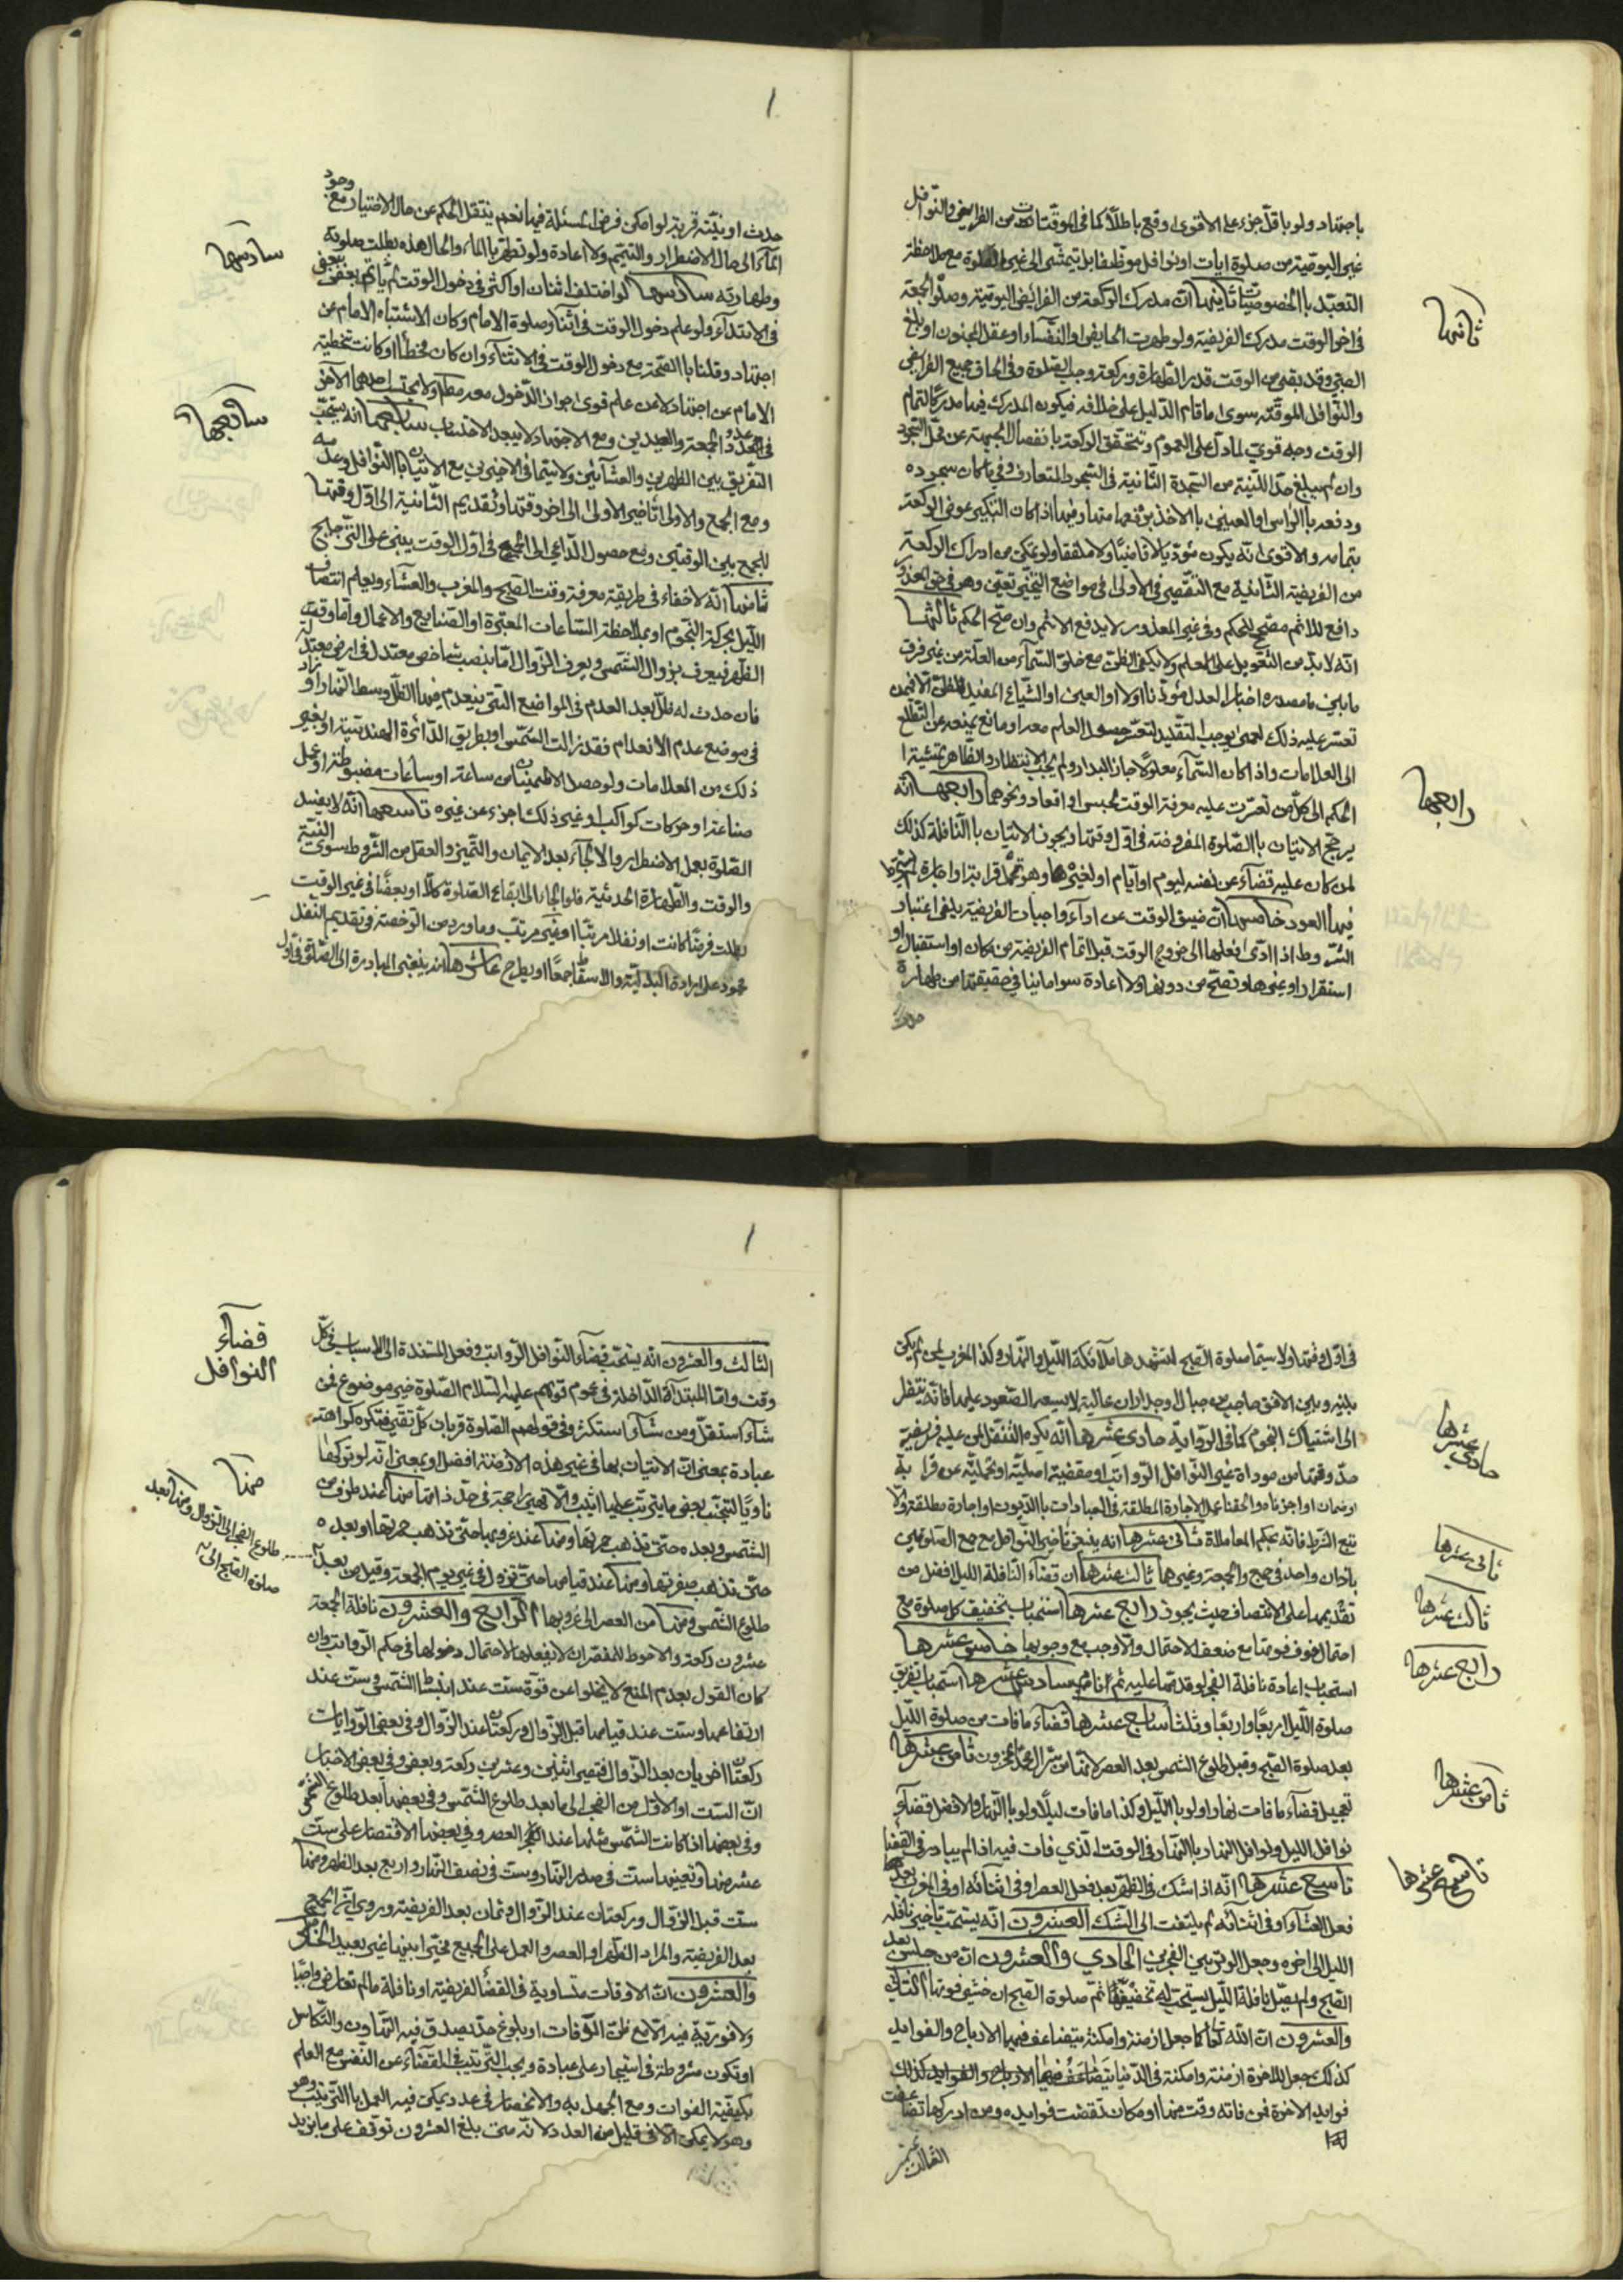 باجتهاد ولو باقل جزء على الاقوى وقع باطلاً كما في الموقتات من الفرايض والنوافل
غير اليومية من صلوة ايات او نوافل موظفة بل يتمشى الى غير الصلوة مع ملاحظة
التعبد بالخصوصيات ثانيها ان مدرك الركعة من الفرائض اليومية وصلوة الجمعة
في اخر الوقت مدرك الفريضة ولو طهرت الحايض او النفساء او عقل المجنون او بلغ
الصبي وقد بقي من الوقت قدر الطهارة وركعة وجب الصلوة وفي الحاق جميع الفرايض
والنوافل الموقتة سوى ما قام الدليل على خلافه فيكون المدرك فيها مدركا لتمام
الوقت وجه قوي لما دل على العموم وتتحقق الركعة بانفصال الجبهة عن محل السجود
وان لم يبلغ حد اللبنة من السجدة الثانية في السجود المتعارف وفي ما كان سجوده
ودفعه بالراس او العينين بالاخذ برفعها منها
بتمامه والاقوى انه يكون مؤديا لا قاضيا ولا ملفقا ولو تمكن من ادراك الركعة
من الفريضة الثانية مع التقصير في الاولى في مواضع التخيير تعين وهو في حق المعذور
دافع للاثم مصحح للحكم وفي غير المعذور لا يدفع الاثم وان صح الحكم ثالثها
انه لا بد من التعويل على العلم ولا يكفي الظن مع خلو السماء من العلة من غير فرق
ما بين ما مصدره اخبار العدل مؤذنا او لا او العين او الشياع المفيد للظن الا فيمن
تعسر عليه ذلك لعمى يوجب التقليد لتعسر حصول العلم معه او مانع يمنعه عن التطلع
الى العلامات واذا كان السماء معلولا جاز البدار ولم يجب الانتظار والظاهر تمشية
الحكم الى كل من تعذرت عليه معرفة الوقت لحبس او اقعاد ونحوهما رابعها انه
يرجح الاتيان بالصلوة المفروضة في اول وقتها ويجوز الاتيان بالنافلة كذلك
لمن كان عليه قضاء عن نفسه ليوم او ايام او لغيره
فيها العود خامسها ان ضيق الوقت عن اداء واجبات الفريضة يلغي اعتبار
الشروط اذا ادى فعلها الى خروج الوقت قبل اتمام الفريضة من مكان او استقبال او
استقرار او غيرها وتصح من دونها ولا اعادة سوا ما ينافي حقيقتها من طهارة
ثانيها
رابعها
حدث او نية قربة لو امكن فرض المسئلة فيها نعم ينتقل الحكم عن حال الاختيار مع وجود
الماء الى حال الاضطرار والتيمم ولا اعادة ولو تطهر بالماء والحال هذه بطلت صلوته
وطهارته سادسها لو اختلف اثنان او اكثر في دخول الوقت لم يأتم بعض ببعض
في الابتداء ولو علم دخول الوقت في اثناء صلوة الامام وكان الاشتباه الامام عن
اجتهاد وقلنا بالصحة مع دخول الوقت في الاثناء وان كان مخطأ او كانت تخطئة
الامام عن اجتهاد لا عن علم قوي جواز الدخول معه مطلقا ولا يحتسب احدهما الاخر
في عدد الجمعة والعيدين ومع الاجتهاد لا يبعد الاحتساب سابعها انه يستحب
التفريق بين الظهرين والعشائين ولا سيما في الاخيرين مع الاتيان بالنوافل وعدمه
ومع الجمع والاولى تاخير الاولى الى اخر وقتها وتقديم الثانية الى اول وقتها
للجمع بين الوقتين ومع حصول الداعي الى الجمع في اول الوقت يبنى على الترجيح
ثامنها انه لا خفاء في طريقة معرفة وقت الصبح والمغرب والعشاء ويعلم انتصاف
الليل بحركة النجوم او بملاحظة الساعات المعتبرة او الصنايع والاعمال واما وقت
الظهر فيعرف بزوال الشمس ويعرف الزوال اما بنصب شاخص معتدل في ارض معتدلة
فان حدث له ظل بعد العدم في المواضع التي ينعدم فيها الظل وسط النهار او زاد
في موضع عدم الانعدام فقد زالت الشمس او بطريق الدائرة الهندسية او بغير
ذلك من العلامات ولو حصل الاطمينان من ساعة او ساعات مضبوطة او عمل
صناعة او حركات كواكب او غير ذلك اجزء عن غيره تاسعها انه لا يفسد
الصلوة بعمل الاضطرار والالجاء بعد الايمان والتميز والعقل من الشروط سوى النية
والوقت والطهارة الحدثية فلو الجا الى ايقاع الصلوة كلا او بعضا في غير الوقت
بطلت فرضا كانت او نفلا مرتبا او غير مرتب وما ورد من الرخصة في تقديم النفل
محمول على ارادة البدلية والاسقاط جمعا او يطرح عاشرها انه ينبغي المبادرة الى الصلوة في اول
سادسها
سابعها
في اول وقتها ولا سيما صلوة الصبح لتشهدها ملائكة الليل والنهار وكذا المغرب لمن لم يكن
بينه وبين الافق حاجب من جبال او جدران عالية لا يسعه الصعود عليها فانه ينتظر
الى اشتباك النجوم كما في الرواية حادي عشرها انه يكره التنفل لمن عليه فريضة
حل وقتها من موداة غير النوافل الرواتب او مقضية اصلية او تحملية عن قرابة
او ضمان او اجزناه والحقنا عمل الاجارة المطلقة في العبادات بالديون او اجارة مطلقة والا
تتبع الشرط فانه بحكم المعاملات ثاني عشرها انه ينبغي تاخير النوافل مع جمع الصلوتين
باذان واحد في حج والجمعة وغيرها ثالث عشرها ان قضاء النافلة الليل افضل من
تقديمها على الانتصاف حيث يجوز رابع عشرها استحباب تخفيف كل صلوة مع
احتمال خوف فوتها مع ضعف الاحتمال والا وجب مع وجوبها خامس عشرها
استحباب اعادة نافلة الفجر لو قدمها عليه ثم نام سادس عشرها استحباب تفريق
صلوة الليل اربعا واربعا وثلثا سابع عشرها قضاء ما فات من صلوة الليل
بعد صلوة الصبح وقبل طلوع الشمس بعد العصر لانها من سر ال محمد المخزون ثامن عشرها
تعجيل قضاء ما فات نهارا ولو بالليل وكذا ما فات ليلا ولو بالنهار والافضل قضاء
نوافل الليل ونوافل النهار بالنهار في الوقت الذي فات فيه اذا لم يبادر في القضا
تاسع عشرها انه اذا شك في الظهر بعد فعل العصر او في اثنائه او في المغرب بعد
فعل العشاء او في اثنائه لم يلتفت الى الشك العشرون انه يستحب تاخير نافلة
الليل الى اخره وجعل الوتر بين الفجرين الحادي والعشرون ان من جلس بعد
الصبح ولم يصل نافلة الليل يستحب له تخفيفها ثم صلوة الصبح ان خشي فوتها الثاني
والعشرون ان الله تعالى كما جعل ازمنة وامكنة يتضاعف فيها الارباح والفوايد
كذلك جعل للاخرة ازمنة وامكنة في الدنيا يتضاعف فيها الارباح والفوايد كذلك
فوايد الاخرة فمن فاته وقت منها او مكان نقصت فوايده ومن ادركها تضاعفت
حادي عشرها
ثاني عشرها
ثالث عشرها
رابع عشرها
ثامن عشرها
تاسع عشرها
الثالث والعشرون انه يستحب قضاء النوافل الرواتب وفعل المستندة الى الاسباب في كل
وقت واما المبتدأة الداخلة في عموم قولهم عليهم السلام الصلوة خير موضوع فمن
شاء استقل ومن شاء استكثر وفي قولهم الصلوة قربان كل تقي فتكره كراهة
عبادة بمعنى ان الاتيان بها في غير هذه الازمنة افضل او بمعنى انه لو تركها
ناويا لتجنب بعض ما يترتب عليها اثيب والا فهي راجحة في حد ذاتها منها عند طلوع
الشمس وبعده حتى تذهب حمرتها ومنها عند غروبها حتى تذهب حمرتها او بعده
حتى تذهب صفرتها ومنها عند قيامها حتى تزول في غير يوم الجمعة وقيل من بعد
طلوع الشمس ومنها من العصر الى غروبها الرابع والعشرون نافلة الجمعة
عشرون ركعة والاحوط للمقصر ان لا يفعلها لاحتمال دخولها في حكم الرواتب وان
كان القول بعدم المنع لا يخلوا عن قوة ست عند انبساط الشمس وست عند
ارتفاعها وست عند قيامها قبل الزوال وركعتان عند الزوال وفي بعض الروايات
ركعتان اخريان بعد الزوال فتصير اثنين وعشرين ركعة وبعض وفي بعض الاخبار
ان الست او الاول من الفجر الى ما بعد طلوع الشمس وفي بعضها بعد طلوع الشمس
وفي بعضها اذا كانت الشمس مثلها عند العصر وفي بعضها الاقتصار على ست
عشر منها وتعيينها ست في صدر النهار وست في نصف النهار واربع بعد الظهر ومنها
ست قبل الزوال وركعتان عند الزوال وثمان بعد الفريضة وروي ان الجميع
بعد الفريضة والمراد الظهر او العصر والعمل على الجميع مخيرا بينها غير بعيد الخامس
والعشرون ان الاوقات متساوية في القضاء لفريضة او نافلة ما لم تعارض واجبا
ولا فورية فيه الا مع ظن الوفات او بلوغ حد يصدق فيه التهاون والتكاسل
او تكون مشروطة في استيجار على عبادة ويجب الترتيب في القضاء عن النفس مع العلم
بكيفية الفوات ومع الجهل به والانحصار في عدد يمكن فيه العمل بالترتيب وهو
وهو لا يمكن الا في قليل من العدد لانه متى بلغ العشرون توقف على ما يزيد
قضاء
النوافل
منها
طلوع الفجر الى الزوال ومنها بعد
صلوة الصبح الى